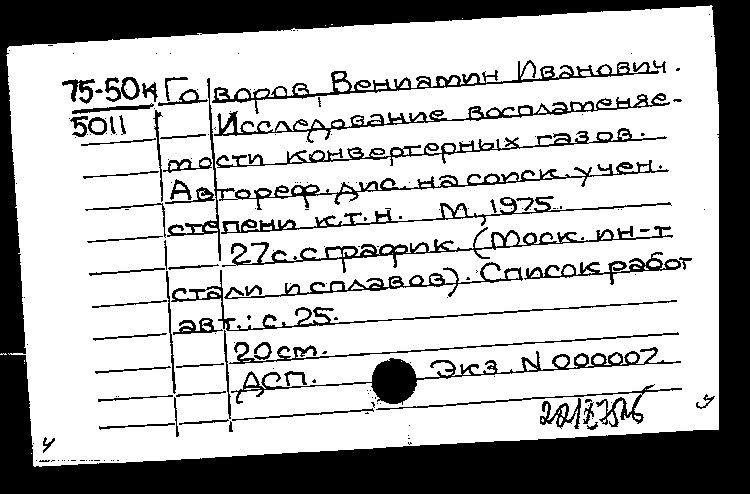 75-50к Говоров, Вениамин Иванович.
5011 Исследование восплатеняе-
мости конвертерных газов.
Автореф. дис. на соиск. учен.
степени к.т.н. М., 1975.
27с. с график. (Моск. ин-т
стали и сплавов). Список работ
авт.: с. 25.
20 см.
ДСП. Экз. N 000007.